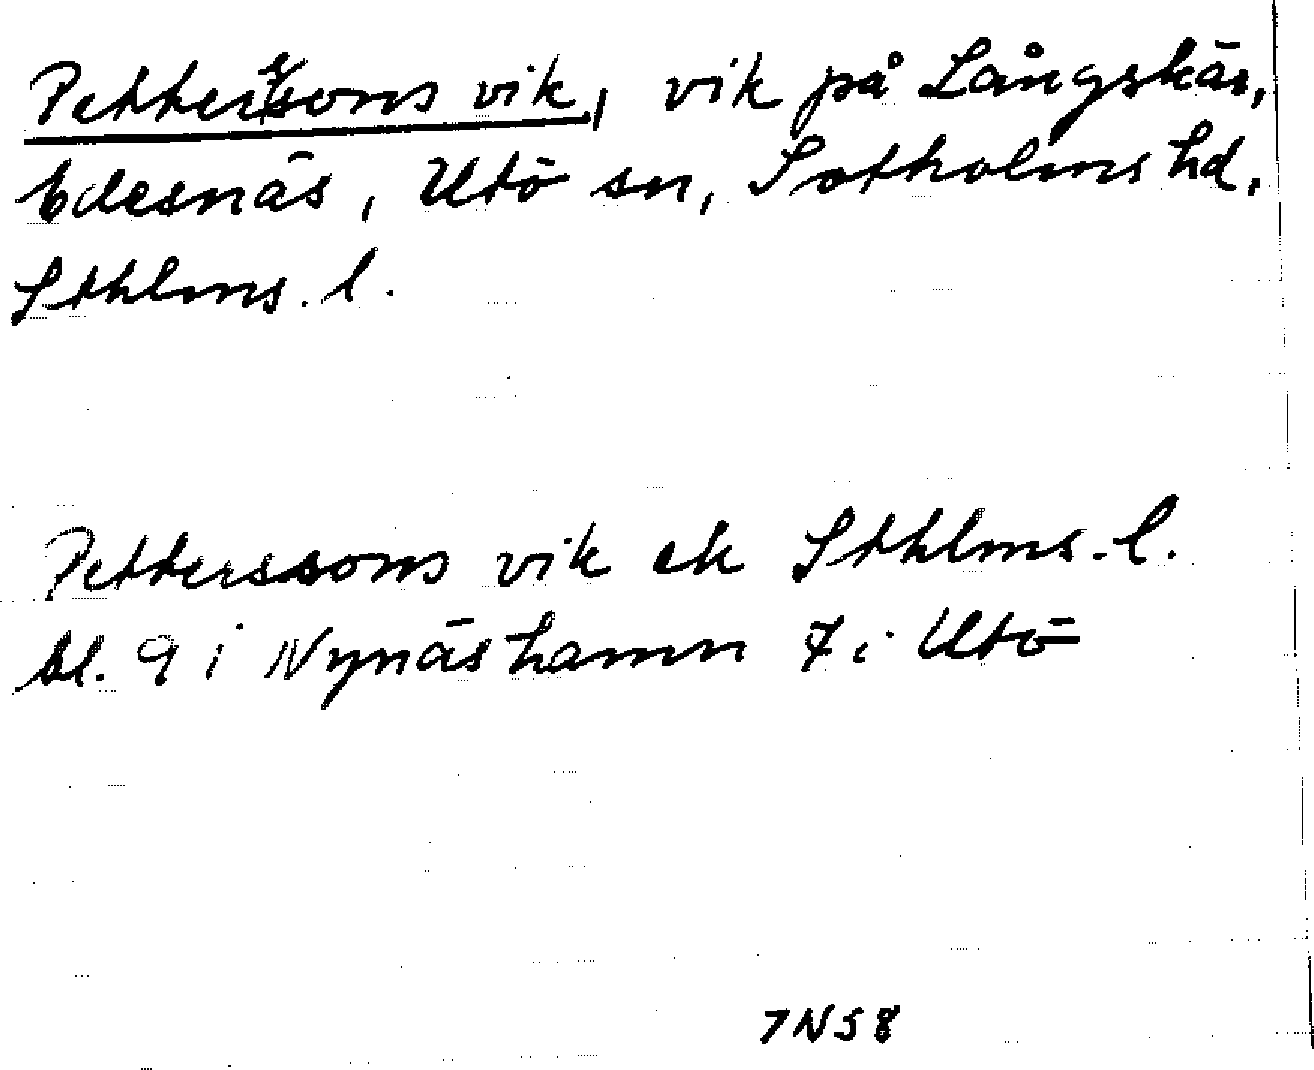 Petterssons vik, vik på Långskär,
Edesnäs, Utö sn, Sotholms hd,
Sthlms. l.
Petterssons vik ek Sthlms. l.
bl. 9 i Nynäshamn 7 i Utö
7N58